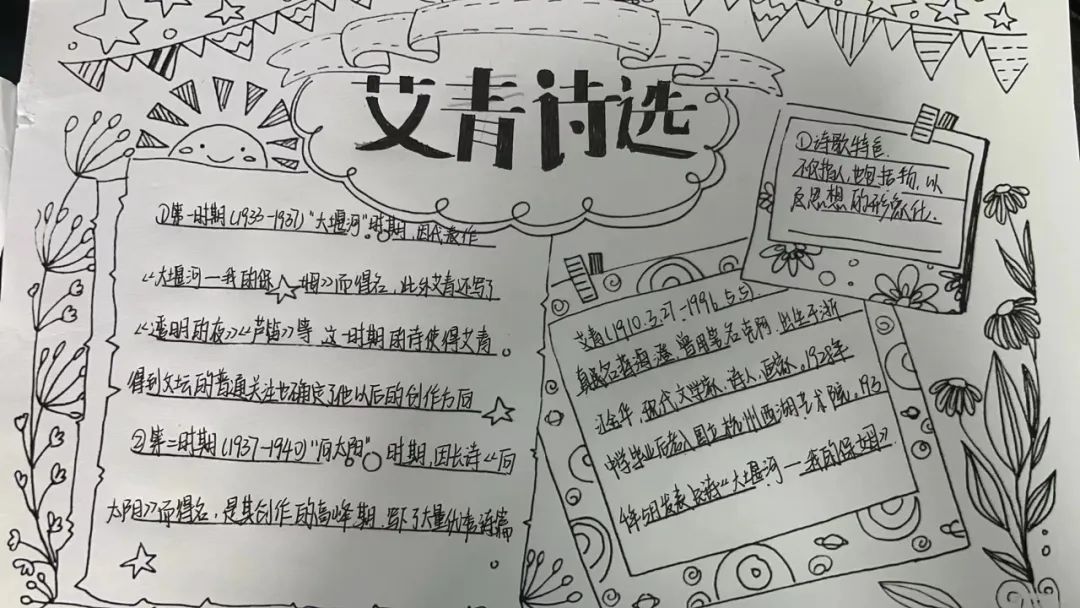 艾青诗选
①第一时期(1933-1937)"大堰河"时期,因代表作
《大堰河—我的保姆》而得名,此外艾青还写了
《透明的夜》《芦笛》等,这一时期的诗使得艾青
得到文坛的普遍关注也确定了他以后的创作方向
②第二时期(1937-1940)"向太阳"时期,因长诗《向
太阳》而得名,是其创作的高峰期,写下了大量代表诗篇
①诗歌特色.
不仅指人,也包括物,以
及思想的形象化.
艾青(1910.3.27-1996.5.5).
真名蒋海澄,曾用笔名克阿,出生于浙
江金华,现代文学家、诗人,画家。1928年
中学毕业后考入国立杭州西湖艺术院。193
年 发表长诗《大堰河—我的保姆》.